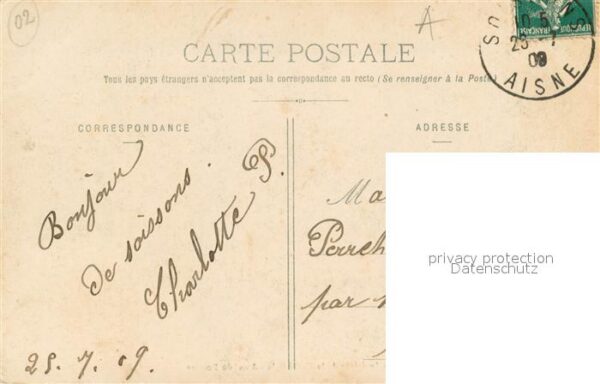 02
A
CARTE POSTALE
Tous les pays étrangers n'acceptent pas la correspondance au recto (Se renseigner à la Poste
CORRESPONDANCE
ADRESSE
SO NS
10 5
25 7
09
AISNE
Bonjour
de soissons.
Charlotte P.
25.7.09.
Ma
Perreh
par
privacy protection
Datenschutz